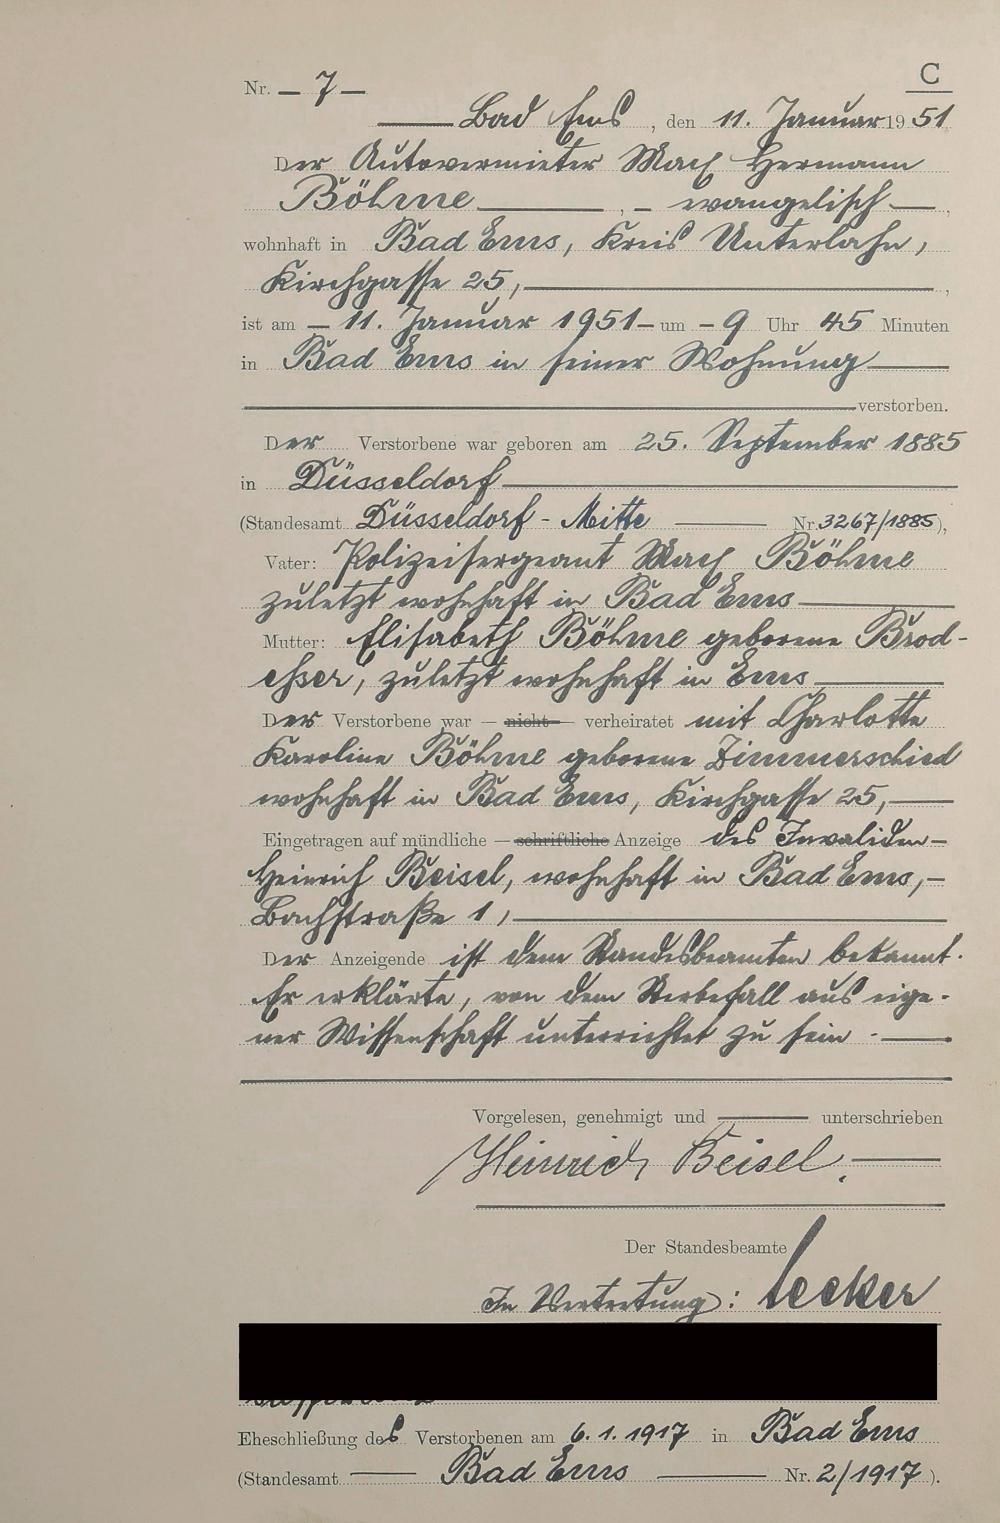 C
Nr. — 7 —
Bad Ems, den 11. Januar 1951
Der Autovermieter Max Hermann
Böhme, — evangelisch —,
wohnhaft in Bad Ems, Kreis Unterlahn,
Kirchgasse 25,
ist am — 11. Januar 1951 — um — 9 Uhr 45 Minuten
in Bad Ems in seiner Wohnung
verstorben.
Der Verstorbene war geboren am 25. September 1885
in Düsseldorf
(Standesamt Düsseldorf - Mitte Nr. 3267/1885),
Vater: Polizeisergeant Max Böhme
zuletzt wohnhaft in Bad Ems
Mutter: Elisabeth Böhme geborene Brod-
esser, zuletzt wohnhaft in Ems
Der Verstorbene war — nicht — verheiratet mit Charlotte
Karoline Böhme geborene Zimmerschied
wohnhaft in Bad Ems, Kirchgasse 25,
Eingetragen auf mündliche — schriftliche Anzeige des Invaliden
Heinrich Beisel, wohnhaft in Bad Ems,
Bachstraße 1,
Der Anzeigende ist dem Standesbeamten bekannt.
Er erklärte, von dem Sterbefall aus eige-
ner Wissenschaft unterrichtet zu sein.
Vorgelesen, genehmigt und unterschrieben
Heinrich Beisel.
Der Standesbeamte
In Vertretung:
Eheschließung des Verstorbenen am 6.1.1917 in Bad Ems
(Standesamt Bad Ems Nr. 2/1917).